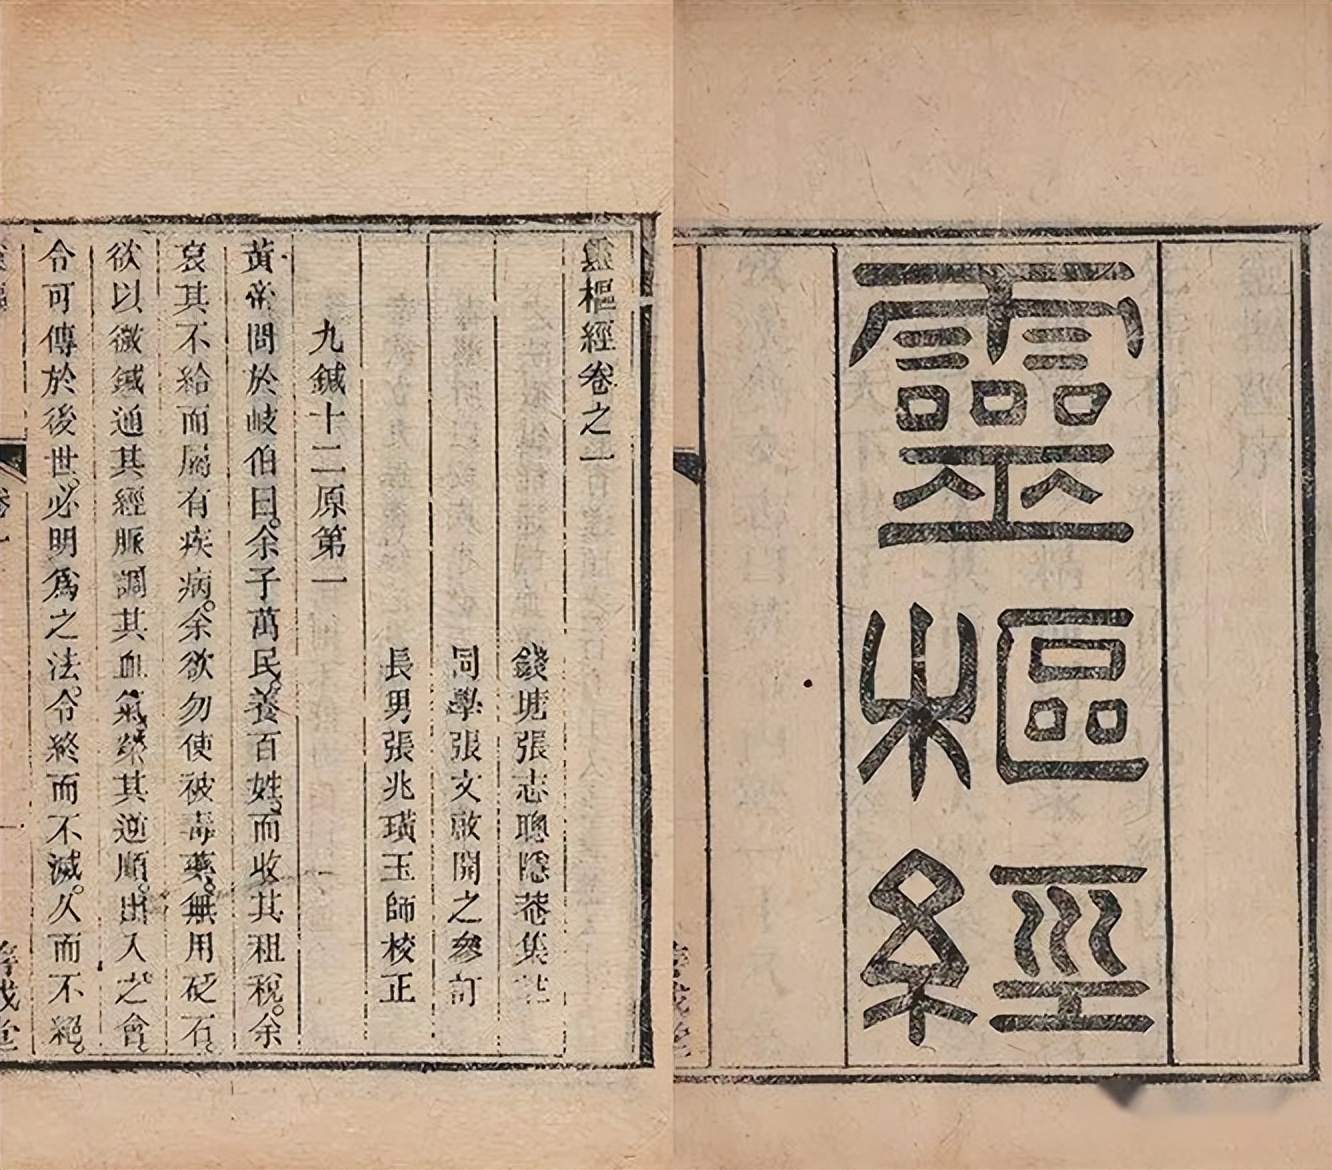 靈樞經
靈樞經卷之一
錢塘張志聰隱菴集註
同學張文啟開之參訂
長男張兆璜玉師校正
九鍼十二原第一
黃帝問於岐伯曰。余子萬民。養百姓。而收其租稅。余
哀其不給而屬有疾病。余欲勿使被毒藥。無用砭石。
欲以微鍼通其經脈調其血氣榮其逆順。出入之會。
令可傳於後世。必明爲之法。令終而不滅。久而不絕。
卷一